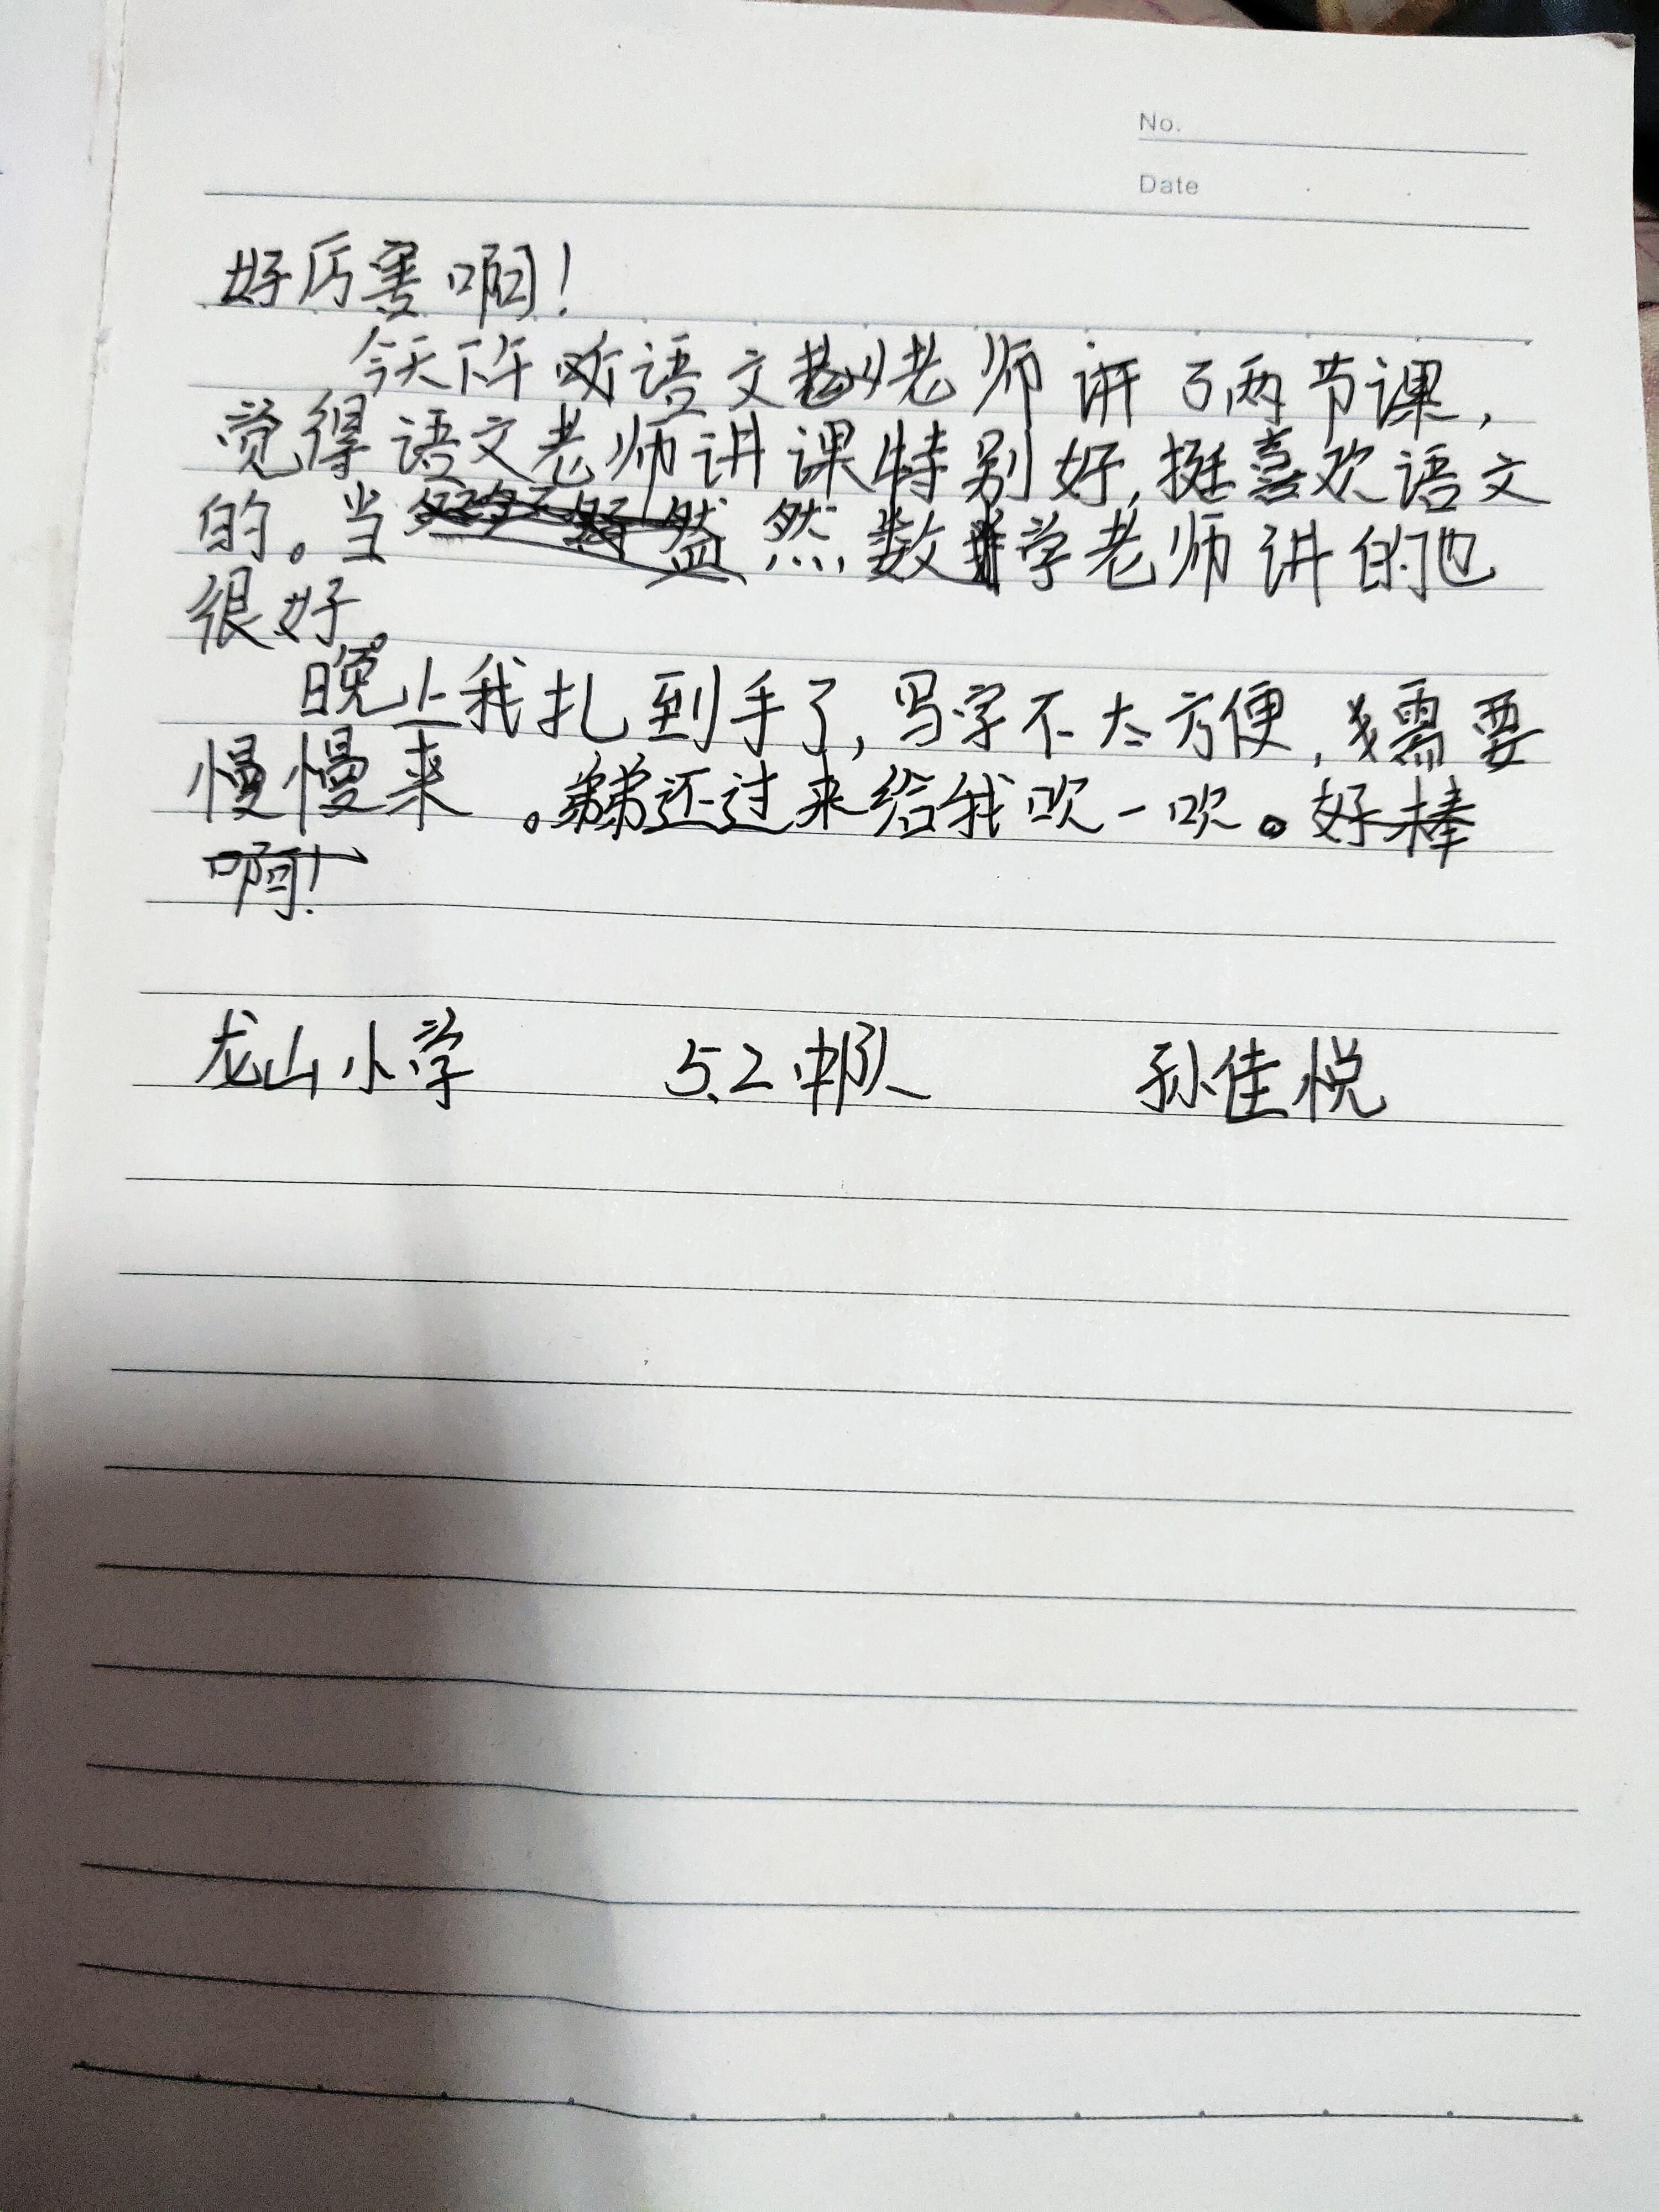 No.
Date
好厉害啊！
今天下午听语文老师讲了两节课，
觉得语文老师讲课特别好，挺喜欢语文
的。当然，数学老师讲的也
很好。
晚上我扎到手了，写字不太方便，我需要
慢慢来。弟弟还过来给我吹一吹。好棒
啊！
龙山小学 5.2中队 孙佳悦